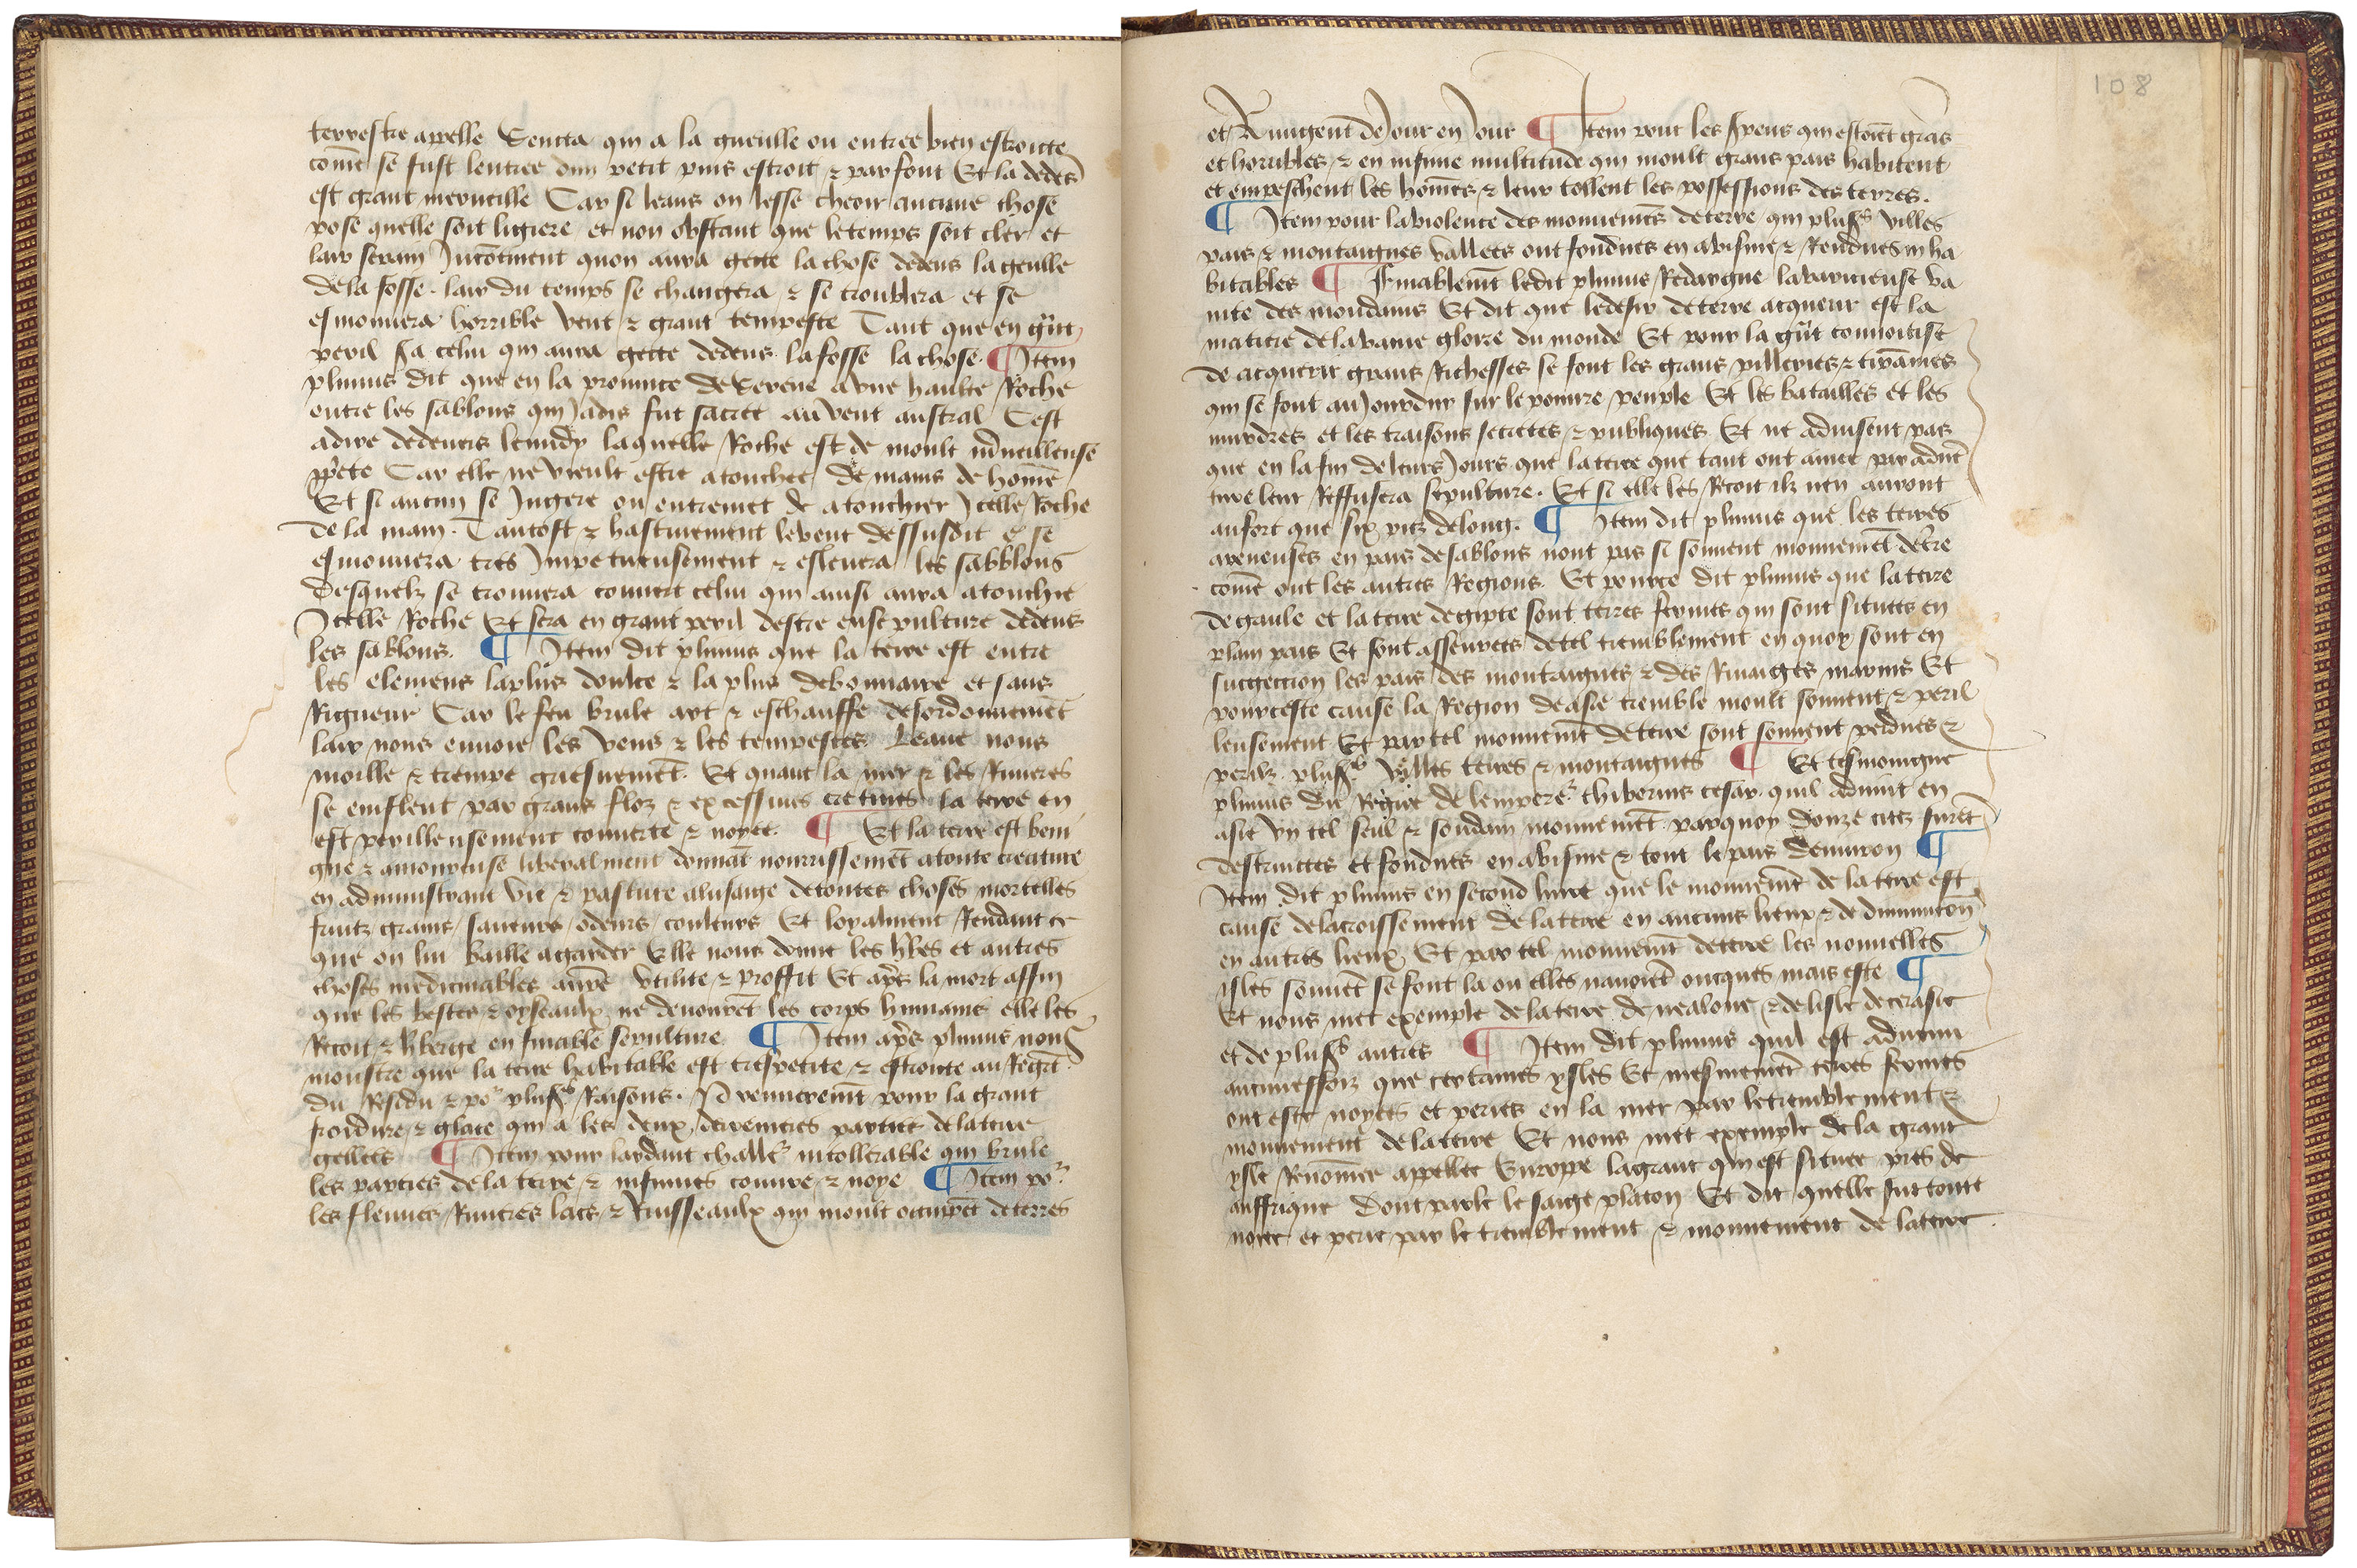 terrestre appelle Sentta qui a la gueulle ou entree bien estroicte
com̄e se fust lentree dun petit puis estroit & parfont Et la dedēs
est grant merueille Car si leans on lesse cheoir aucune chose
pose quelle soit ligiere et non obstant que le temps soit cler et
lair serain Incōtinent quon aura gette la chose dedens la geulle
de la fosse. lair du temps se changera & se troublera et se
esmouuera horrible vent & grant tempeste Tant que en gr̄nt
peril sa celui qui aura gette dedens la fosse la chose. ¶ Item
plinius dit que en la prouince de Cerene a vne haulte Roche
entre les sablons qui Jadis fut sacree au vent austral Cest
adire deduers lemidy laquelle Roche est de moult m̄ueilleuse
pp̄ete Car elle ne vieult estre atouchee de mains de hom̄e
Et si aucun se Ingere ou entremet de atouchier Icelle Roche
de la main. Tantost & hastiuement le vent dessusdit se
esmouuera tres Impetueusement & esleuera les sablons
Desquelz se trouuera couuert celui qui ainsi aura atouchie
Icelle Roche Et sera en grant peril destre ensepulture dedens
les sablons. ¶ Item dit plinius que la terre est entre
les elemens la plus doulce & la plus debonnaire et sans
Rigueur Car le feu brule art & eschauffe desordonnemēt
lair nous enuoie les vens & les tempestes Leaue nous
moille & trempe griefuemēt. Et quant la mer & les Riuieres
se emflent par grans floz & excessiues cretines la terre en
est perilleusement couuerte & noyee. ¶ Et la terre est beni
gne & amoureuse liberalment donnāt nourrissemēt a toute creature
en administrant vie & pasture a lusaige de toutes choses mortelles
fruitz grains saueurs odeurs couleurs Et loyalment Rendant ce
que on lui baille agarder Elle nous donne les h̄bes et autres
choses medicinables a nr̄e vtilite & proffit Et ap̄s la mort affin
que les bestes & oyseaulx ne deuourēt les corps humains elle les
Recoit & h̄berge en finable sepulture ¶ Item ap̄s plinius nous
monstre que la terre habitable est trespetite & estroicte au Regart
du Residu & po2 plus̄s Raisons. Premieremēt pour la grant
froidure & glace qui a les deux derrenieres parties de la terre
gellees ¶ Item pour lardant challe2 intollerable qui brule
les parties de la terre & infinies couure & noye ¶ Item po2
les fleuues Riuieres lacs & Ruisseaulx qui moult occupēt de terres
108
et Ramigent de Jour en Jour ¶ Item pour les spens qui estoiēt grās
et horribles & en infinie multitude qui moult grans pais habitent
et empeschent les hom̄es & leur tollent les possessions des terres.
¶ Item pour la violence des mouuemēs de terre qui plus̄s villes
pais & montaignes vallees ont fondues en abisme & Rendues inha
bitables ¶ Finablemēt ledit plinius Redargue lauaricieuse va
nite des mondains Et dit que le desir de terre acquerir est la
matiere de la vaine gloire du monde Et pour la gr̄nt conuoitise
de acquerir grans Richesses se font les grans pilleries & tirānies
qui se font au Jourdui sur le pouure peuple Et les batailles et les
murdres et les traisons secretes & publiques Et ne aduisent pas
que en la fin de leurs Jours que la terre que tant ont amee par aduē
ture leur Reffusera sepulture. Et si elle les Recoit ilz nen auront
au fort que six piez de long. ¶ Item dit plinius que les terres
areneuses en pais de sablons nont pas si souuent mouuemēt de t̄re
com̄e ont les autres Regions. Et pource dit plinius que la terre
de gaule et la terre degipte sont terres fermes qui sont situees en
plain pais Et sont asseurees de tel tremblement en quoy sont en
suggection les pais des montaignes & des Riuaiges marins Et
pour ceste cause la Region de asie tremble moult souuent & peril
leusement Et par tel mouuemēt de terre sont souuent perdues &
periz plus̄s villes terres & montaignes ¶ Et tesmoingne
plinius du Regne de lempere2 thiberius cesar quil aduint en
asie vn tel seul & soudain mouuemēt. parquoy douze citez furēt
destruictes et fondues en abisme & tout le pais denuiron ¶
Item dit plinius en second liure que le mouuemēt de la terre est
cause de lacroissement de la terre en aucuns lieux & de diminuciōn
en autres lieux Et par tel mouuemēt de terre les nouuelles
isles souuēt se font la ou elles nauoiēt oncques mais este ¶
Et nous met exemple de la terre de nealone & de lisle de crasie
et de plus̄s autres ¶ Item dit plinius quil est aduenu
aucuneffoiz que certaines ysles Et mesmemēt terres fermes
ont este noyees et peries en la mer par le tremblement &
mouuement de la terre Et nous met exemple de la grant
ysle Renōmee appellee Europe la grant qui est situee pres de
auffrique Dont parle le saige platon Et dit quelle fut toute
noiee et perie par le tremblement & mouuement de la terre.